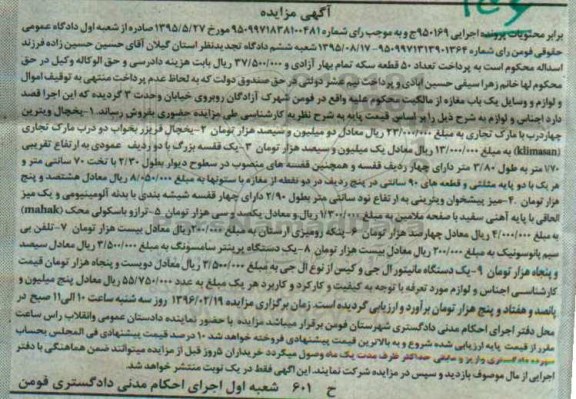 آگهی مزایده
برابر محتویات پرونده اجرایی ۹۵۰۱۶۹ج و به موجب رای شماره ۹۵۰۹۹۷۱۸۳۸۱۰۰۴۸۱ مورخ ۱۳۹۵/۵/۲۷ صادره از شعبه اول دادگاه عمومی
حقوقی فومن رای شماره ۹۵۰۹۹۷۱۳۱۳۹۰۱۳۶۴–۱۳۹۵/۰۸/۱۷ شعبه ششم دادگاه تجدیدنظر استان گیلان آقای حسین حسین زاده فرزند
اسداله محکوم است به پرداخت تعداد ۵۰ قطعه سکه تمام بهار آزادی و ۳۷/۵۰۰/۰۰۰ ریال بابت هزینه دادرسی و حق الوکاله وکیل در حق
محکوم لها خانم زهره سیفی حسین آبادی و پرداخت نیم عشر دولتی در حق صندوق دولت که به لحاظ عدم پرداخت منتهی به توقیف اموال
و لوازم و وسایل یک باب مغازه از مالکیت محکوم علیه واقع در فومن شهرک آزادگان روبروی خیابان وحدت ۳ گردیده که این اجرا قصد
دارد اجناس و لوازم به شرح ذیل را بر اساس قیمت پایه به شرح نظریه کارشناسی طی مزایده حضوری بفروش رساند. ۱-یخچال ویترین
چهاردرب با مارک تجاری به مبلغ ۲۳/۰۰۰/۰۰۰ ریال معادل دو میلیون و سیصد هزار تومان ۲-یخچال فریزر بخواب دو درب مارک تجاری
(klimasan) به مبلغ ۱۳/۰۰۰/۰۰۰ ریال معادل یک میلیون و سیصد هزار تومان ۳-یک قفسه بزرگ با دو ردیف عمودی به ارتفاع تقریبی
۱/۷۰ متر به طول ۳/۸۰ متر دارای چهار ردیف قفسه و همچنین قفسه های منصوب در سطوح دیوار بطول ۲/۳۰ با تخت ۷۰ سانتی متر و
هر یک با دو پایه مثلثی و قطعه های ۹۰ سانتی در پنج ردیف در دو نقطه از مغازه با ستونها به مبلغ ۸/۰۵۰/۰۰۰ ریال معادل هشتصد و پنج
هزار تومان ۴-میز پیشخوان ویترینی به ارتفاع نود سانتی متر بطول ۲/۹۰ دارای چهار قفسه شیشه بندی با بدنه آلومینیومی و یک میز
الحاقی با پایه آهنی سفید با صفحه ملامین به مبلغ ۱/۳۰۰/۰۰۰ ریال و معادل یکصد و سی هزار تومان ۵-ترازو باسکولی محک (mahak)
به مبلغ ۴/۰۰۰/۰۰۰ ریال معادل چهارصد هزار تومان ۶-پنکه رومیزی ارستان به مبلغ ۲۰۰/۰۰۰ ریال معادل بیست هزار تومان ۷-تلفن بی
سیم پاناسونیک به مبلغ ۲۰۰/۰۰۰ ریال معادل بیست هزار تومان ۸-یک دستگاه پرینتر سامسونگ به مبلغ ۳/۵۰۰/۰۰۰ ریال معادل سیصد
و پنجاه هزار تومان ۹-یک دستگاه مانیتور ال جی و کیس از نوع ال جی به مبلغ ۲/۵۰۰/۰۰۰ ریال معادل دویست و پنجاه هزار تومان قیمت
کارشناسی اجناس و لوازم مورد تعرفه با توجه به کیفیت و کارکرد و کاربرد هر یک مبلغ به عدد ۵۵/۷۵۰/۰۰۰ ریال معادل پنج میلیون و
پانصد و هفتاد و پنج هزار تومان برآورد و ارزیابی گردیده است. زمان برگزاری مزایده ۱۳۹۶/۰۲/۱۹ روز سه شنبه ساعت ۱۰ الی ۱۱ صبح در
محل دفتر اجرای احکام مدنی دادگستری شهرستان فومن برقرار میباشد. مزایده با حضور نماینده دادستان عمومی وانقلاب راس ساعت
مقرر از قیمت پایه ارزیابی شده شروع و به بالاترین قیمت پیشنهادی فروخته خواهد شد ۱۰ درصد قیمت پیشنهادی فی المجلس بحساب
سپرده دادگستری واریز و مابقی حداکثر ظرف مدت یک ماه وصول میگردد خریداران ۵روز قبل از مزایده میتوانند ضمن هماهنگی با دفتر
اجرایی از مال موصوف بازدید و سپس در مزایده شرکت نمایند. این آگهی فقط در یک نوبت منتشر خواهد شد
ح ۶۰۱ شعبه اول اجرای احکام مدنی دادگستری فومن